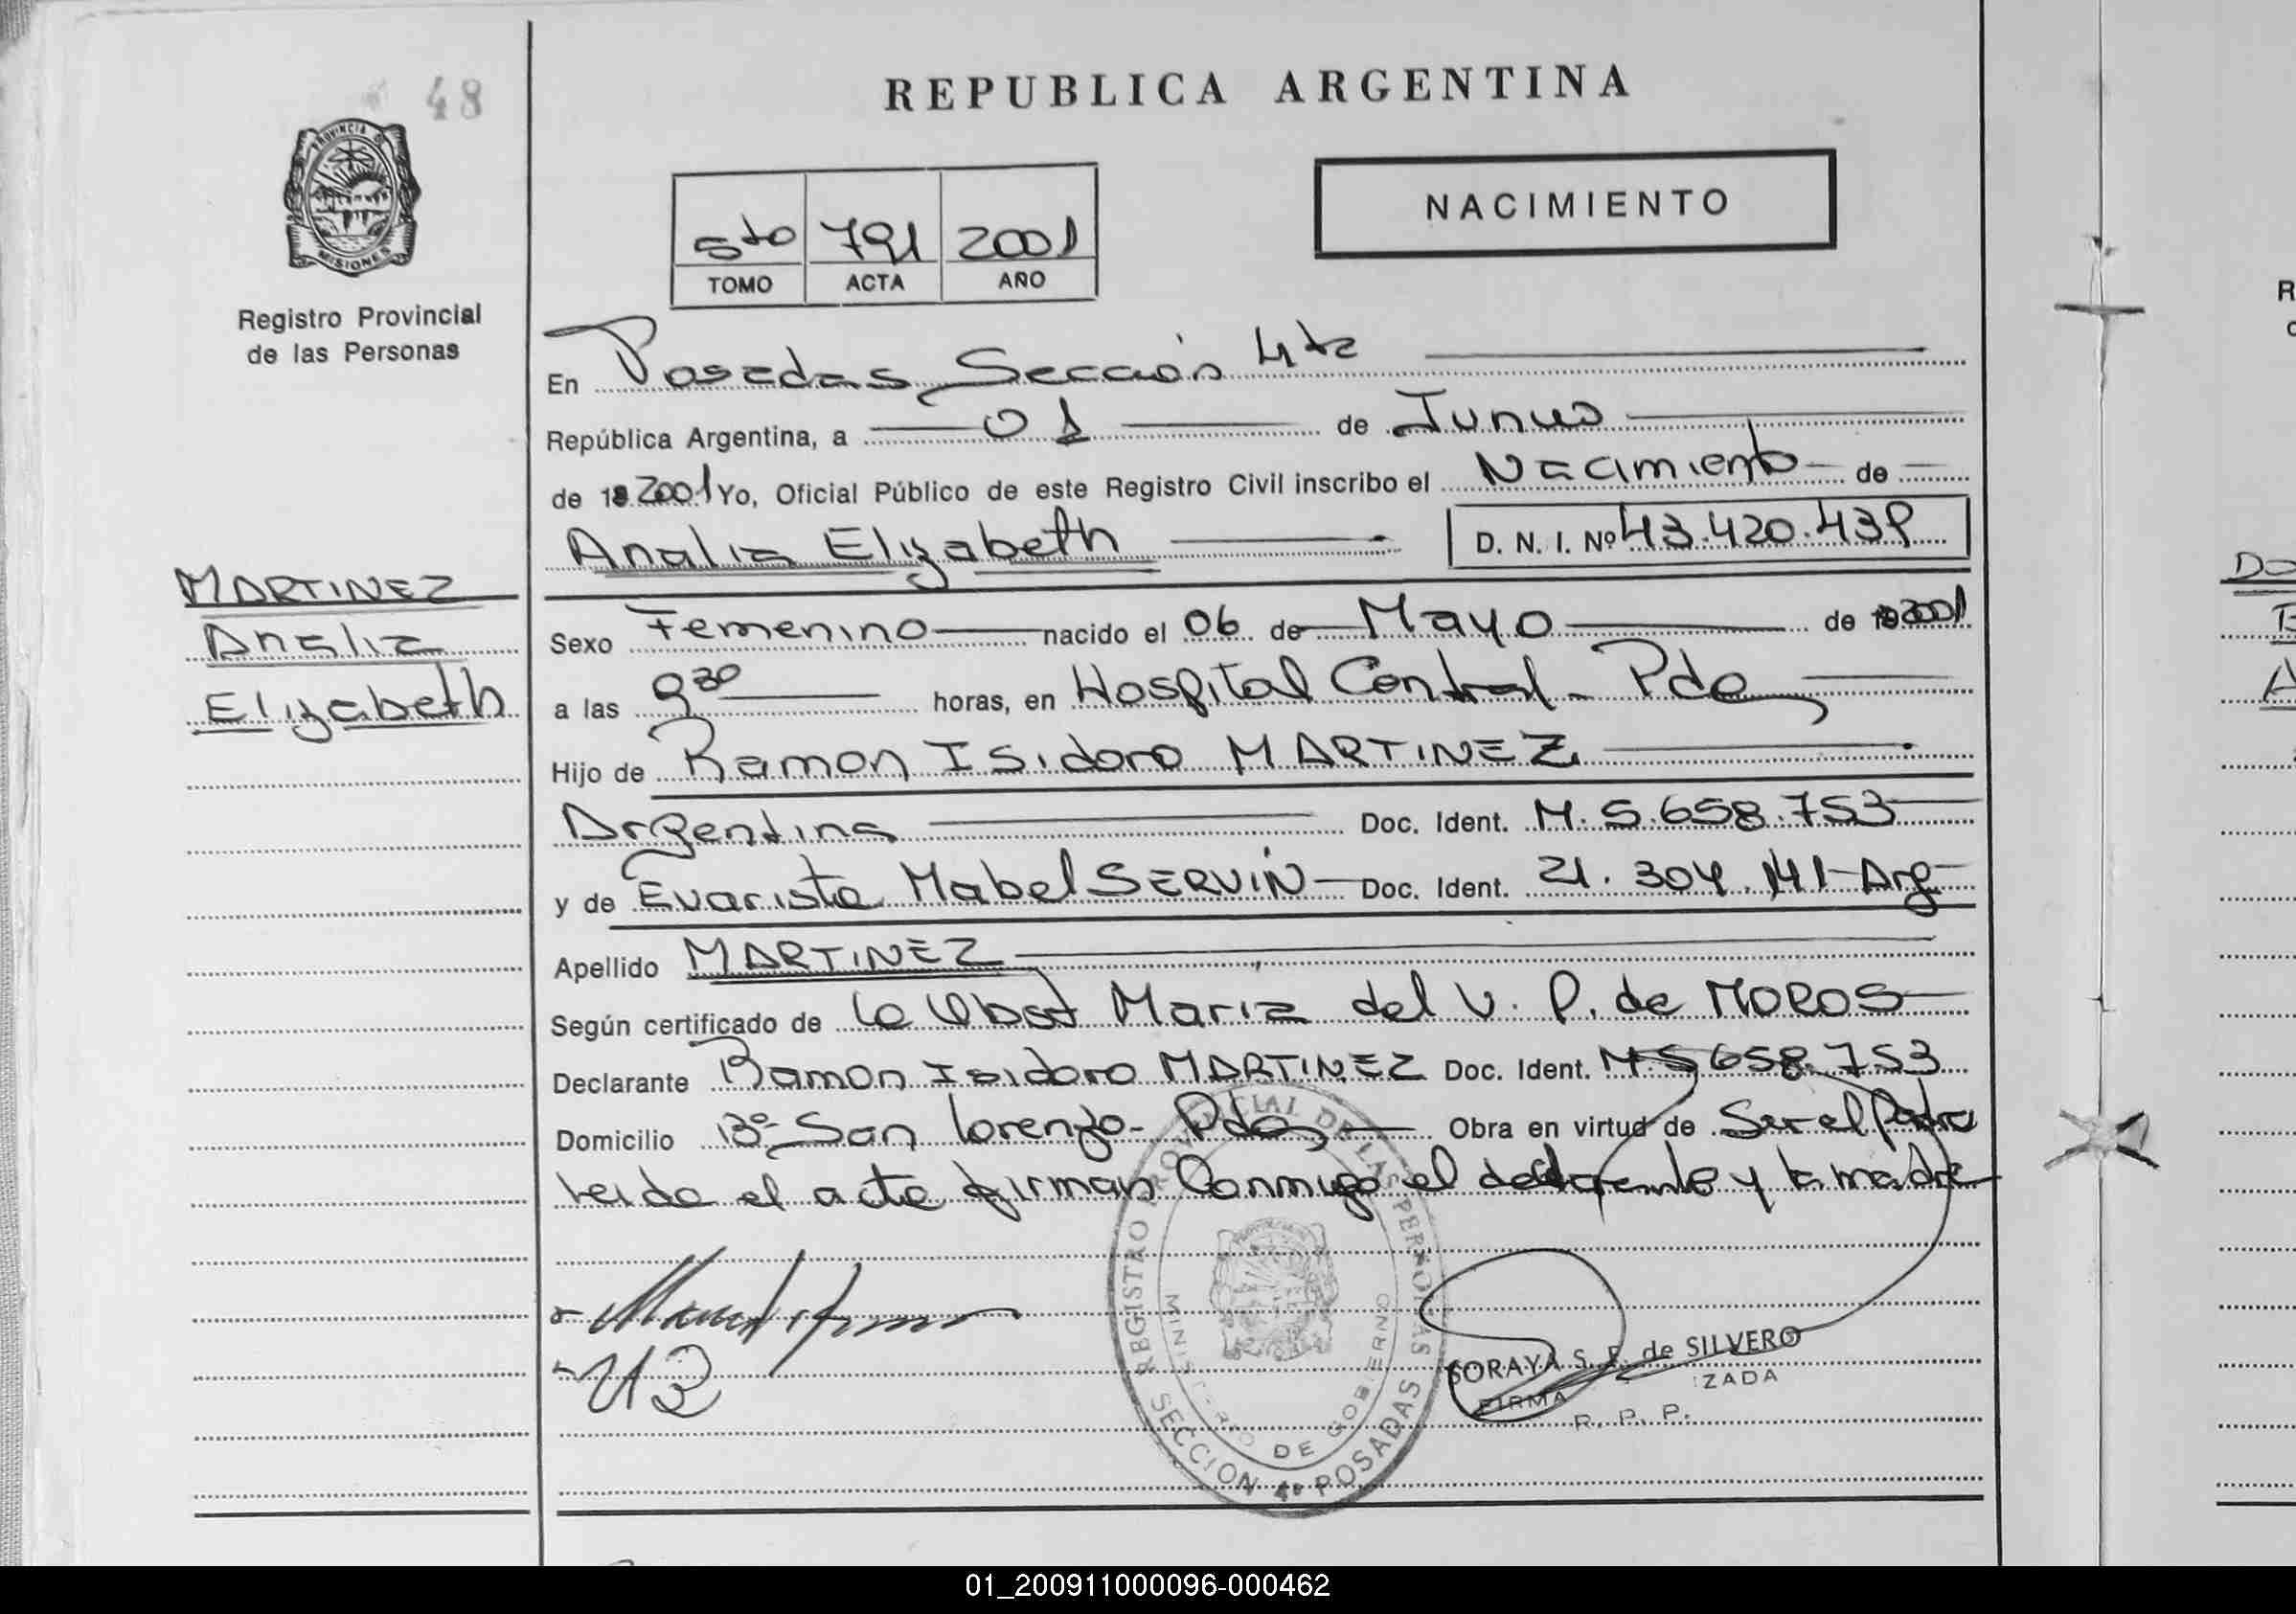 48
REPUBLICA ARGENTINA
PROVINCIA DE
MISIONES
Registro Provincial
de las Personas
NACIMIENTO
5to 791 2001
TOMO ACTA AÑO
En Posadas, Sección 4ta
República Argentina, a 01 de Junio
de 19 2001 Yo, Oficial Público de este Registro Civil inscribo el Nacimiento de
Analia Elizabeth D. N. I. Nº 43.420.439
MARTINEZ
Analia
Elizabeth
Sexo Femenino nacido el 06 de Mayo de 19 2001
a las 9 30 horas, en Hospital Central - Pdas
Hijo de Ramon Isidoro MARTINEZ
Argentina Doc. Ident. M. 5.658.753
y de Evarista Mabel SERVIN Doc. Ident. 21.304.141 - Arg
Apellido MARTINEZ
Según certificado de la Obst Maria del V. P. de MOROS
Declarante Ramon Isidoro MARTINEZ Doc. Ident. M. 5 658.753
Domicilio Bº San Lorenzo - Pdas Obra en virtud de Ser el Padre
Leida el acta firman Conmigo el declarante y la madre
REGISTRO PROVINCIAL DE LAS PERSONAS
MINISTERIO DE GOBIERNO
SECCION 4º POSADAS
SORAYA S. F. de SILVERO
FIRMA IZADA
R. P. P.
01_200911000096-000462